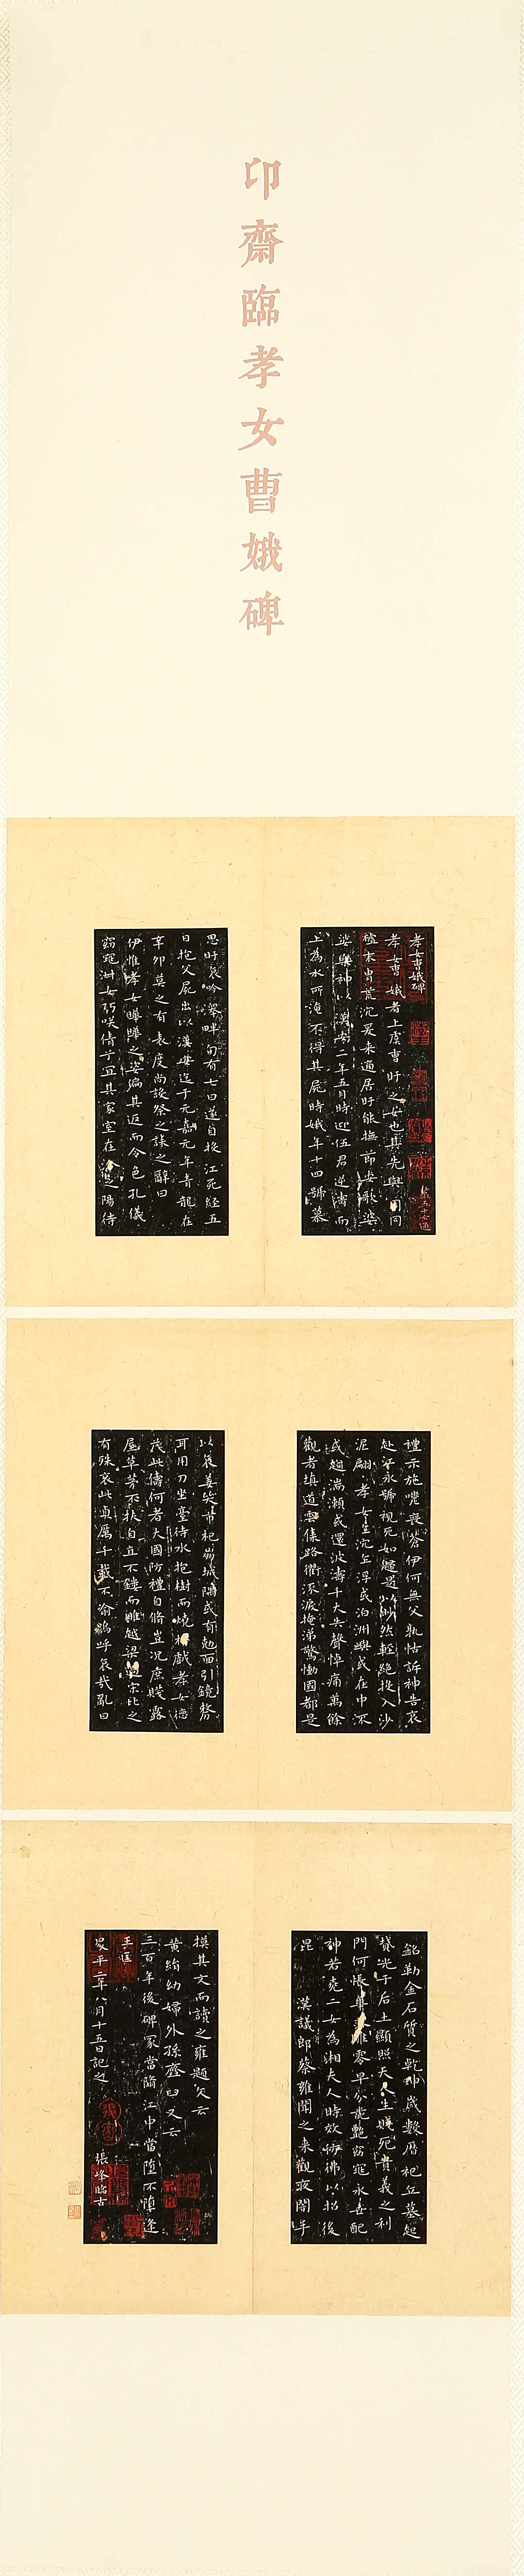 印齋臨孝女曹娥碑
孝女曹娥碑
孝女曹娥者上虞曹盱之女也其先與周同
祖末胄荒沉爰來適居盱能撫節安歌婆
娑樂神以漢安二年五月時迎伍君逆濤而
上為水所淹不得其屍時娥年十四號慕
思盱哀吟澤畔旬有七日遂自投江死經五
日抱父屍出以漢安迄于元嘉元年青龍在
辛卯莫之有表度尚設祭之誄之辭曰
伊惟孝女曄曄之姿偏其返而令色孔儀
窈窕淑女巧咲倩兮宜其家室在洽之陽待
禮未施嗟喪蒼伊何無父孰怙訴神告哀
赴江永號視死如歸是以眇然輕絕投入沙
泥翩翩孝女乍沉乍浮或泊洲嶼或在中流
或趨湍瀨或還波濤千夫失聲悼痛萬餘
觀者填道雲集路衢泣淚掩涕驚慟國都是
以哀姜哭市杞崩城隅或有勉面引鏡剺
耳用刀坐臺待水抱樹而燒於戲孝女德
茂此儔何者大國防禮自脩豈況庶賤露
屋草茅不扶自直不鏤而雕越梁過宋比之
有殊哀此貞厲千載不渝嗚呼哀哉亂曰
銘勒金石質之乾坤歲數曆祀丘墓起
墳光于后土顯照天人生賤死貴義之利
門何悵華落雕零早分葩艷窈窕永世配
神若堯二女為湘夫人時效彷彿以招後
昆
漢議郎蔡雍聞之來觀夜闇手
摸其文而讀之雍題文云
黃絹幼婦外孫齏臼又云
三百年後碑冢當墮江中當墮不墮逢
王匡
昇平二年八月十五日記之
張峰臨古